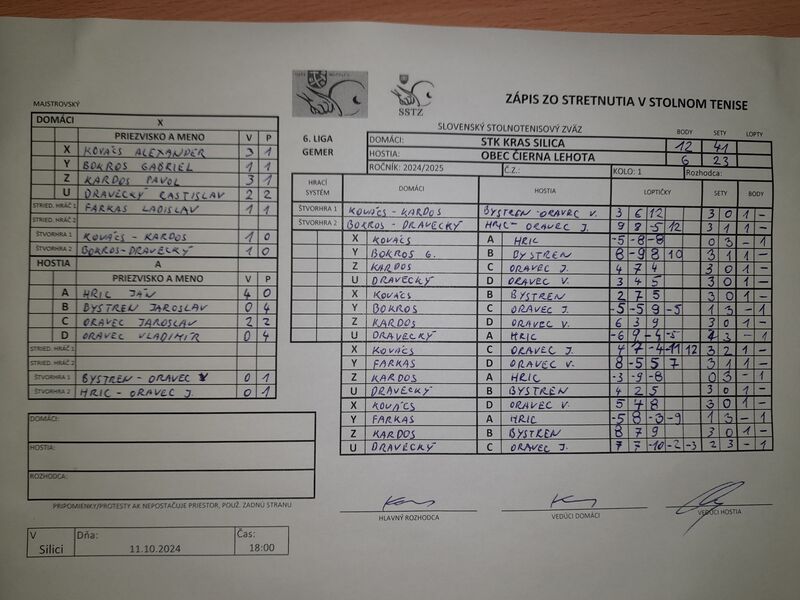 MAJSTROVSKÝ
DOMÁCI X
PRIEZVISKO A MENO V P
X KOVÁCS ALEXANDER 3 1
Y BOKROS GABRIEL 1 1
Z KARDOS PAVOL 3 1
U DRAVECKÝ RASTISLAV 2 2
STRIED. HRÁČ 1 FARKAS LADISLAV 1 1
STRIED. HRÁČ 2
ŠTVORHRA 1 KOVÁCS - KARDOS 1 0
ŠTVORHRA 2 BOKROS - DRAVECKÝ 1 0
HOSTIA A
PRIEZVISKO A MENO V P
A HRIC JÁN 4 0
B BYSTREN JAROSLAV 0 4
C ORAVEC JAROSLAV 2 2
D ORAVEC VLADIMÍR 0 4
STRIED. HRÁČ 1
STRIED. HRÁČ 2
ŠTVORHRA 1 BYSTREN - ORAVEC V 0 1
ŠTVORHRA 2 HRIC - ORAVEC J. 0 1
DOMÁCI:
HOSTIA:
ROZHODCA:
PRIPOMIENKY/PROTESTY AK NEPOSTAČUJE PRIESTOR, POUŽ. ZADNÚ STRANU
V Silici
Dňa: 11.10.2024
Čas: 18:00
SSTZ
ZÁPIS ZO STRETNUTIA V STOLNOM TENISE
SLOVENSKÝ STOLNOTENISOVÝ ZVÄZ
BODY SETY LOPTY
6. LIGA GEMER
DOMÁCI: STK KRAS SILICA 12 41
HOSTIA: OBEC ČIERNA LEHOTA 6 23
ROČNÍK: 2024/2025 Č.Z.: KOLO: 1 Rozhodca:
HRACÍ SYSTÉM DOMÁCI HOSTIA LOPTIČKY SETY BODY
ŠTVORHRA 1 KOVÁCS - KARDOS BYSTREN - ORAVEC V. 3 6 12 3 0 1 -
ŠTVORHRA 2 BOKROS - DRAVECKÝ HRIC - ORAVEC J. 9 8 -5 12 3 1 1 -
X KOVÁCS A HRIC -5 -8 -8 0 3 - 1
Y BOKROS G. B BYSTREN 8 -9 8 10 3 1 1 -
Z KARDOS C ORAVEC J. 4 7 4 3 0 1 -
U DRAVECKÝ D ORAVEC V. 3 4 5 3 0 1 -
X KOVÁCS B BYSTREN 2 7 5 3 0 1 -
Y BOKROS C ORAVEC J. -5 -5 9 -5 1 3 - 1
Z KARDOS D ORAVEC V. 6 3 9 3 0 1 -
U DRAVECKÝ A HRIC -6 9 -4 -5 1 3 - 1
X KOVÁCS C ORAVEC J. 4 7 -4 -11 12 3 2 1 -
Y FARKAS D ORAVEC V. 8 -5 5 7 3 1 1 -
Z KARDOS A HRIC -3 -9 -8 0 3 - 1
U DRAVECKÝ B BYSTREN 4 2 5 3 0 1 -
X KOVÁCS D ORAVEC V. 5 4 8 3 0 1 -
Y FARKAS A HRIC -5 8 -3 -9 1 3 - 1
Z KARDOS B BYSTREN 8 7 9 3 0 1 -
U DRAVECKÝ C ORAVEC J. 7 7 -10 -2 -3 2 3 - 1
HLAVNÝ ROZHODCA
VEDÚCI DOMÁCI
VEDÚCI HOSTIA